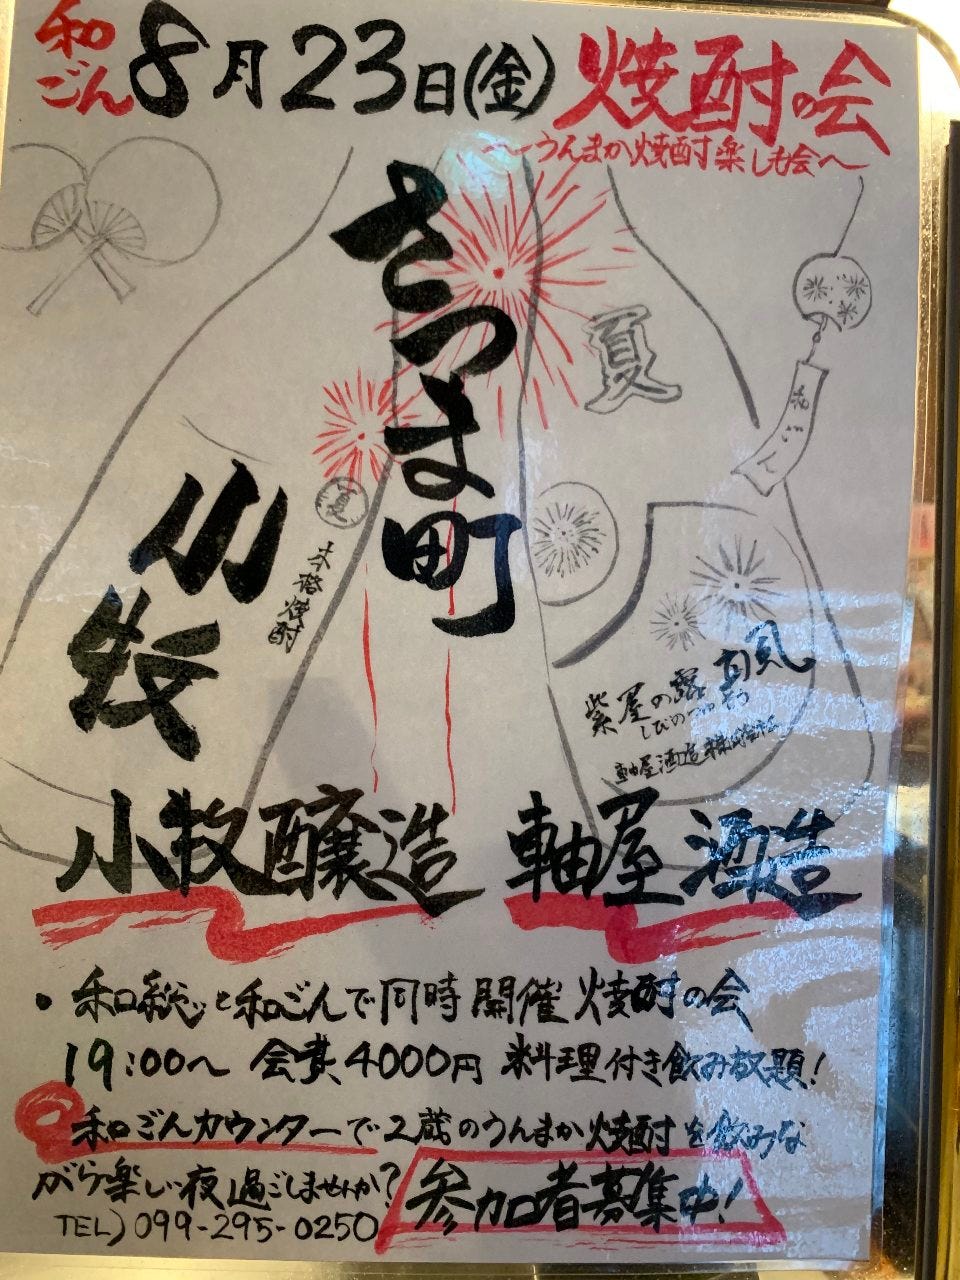 和ごん
8月23日(金)
焼酎の会
～うんまか焼酎楽しむ会～
さつま町
夏
和ごん
小牧
夏
本格焼酎
紫尾の露
しびのつゆ
軸屋酒造株式会社
小牧醸造
軸屋酒造
・和総と和ごんで同時開催焼酎の会
19:00～ 会費4000円 料理付き飲み放題!
和ごんカウンターで2蔵のうんまか焼酎を飲みな
がら楽しい夜過ごしませんか?
参加者募集中!
TEL)099-295-0250